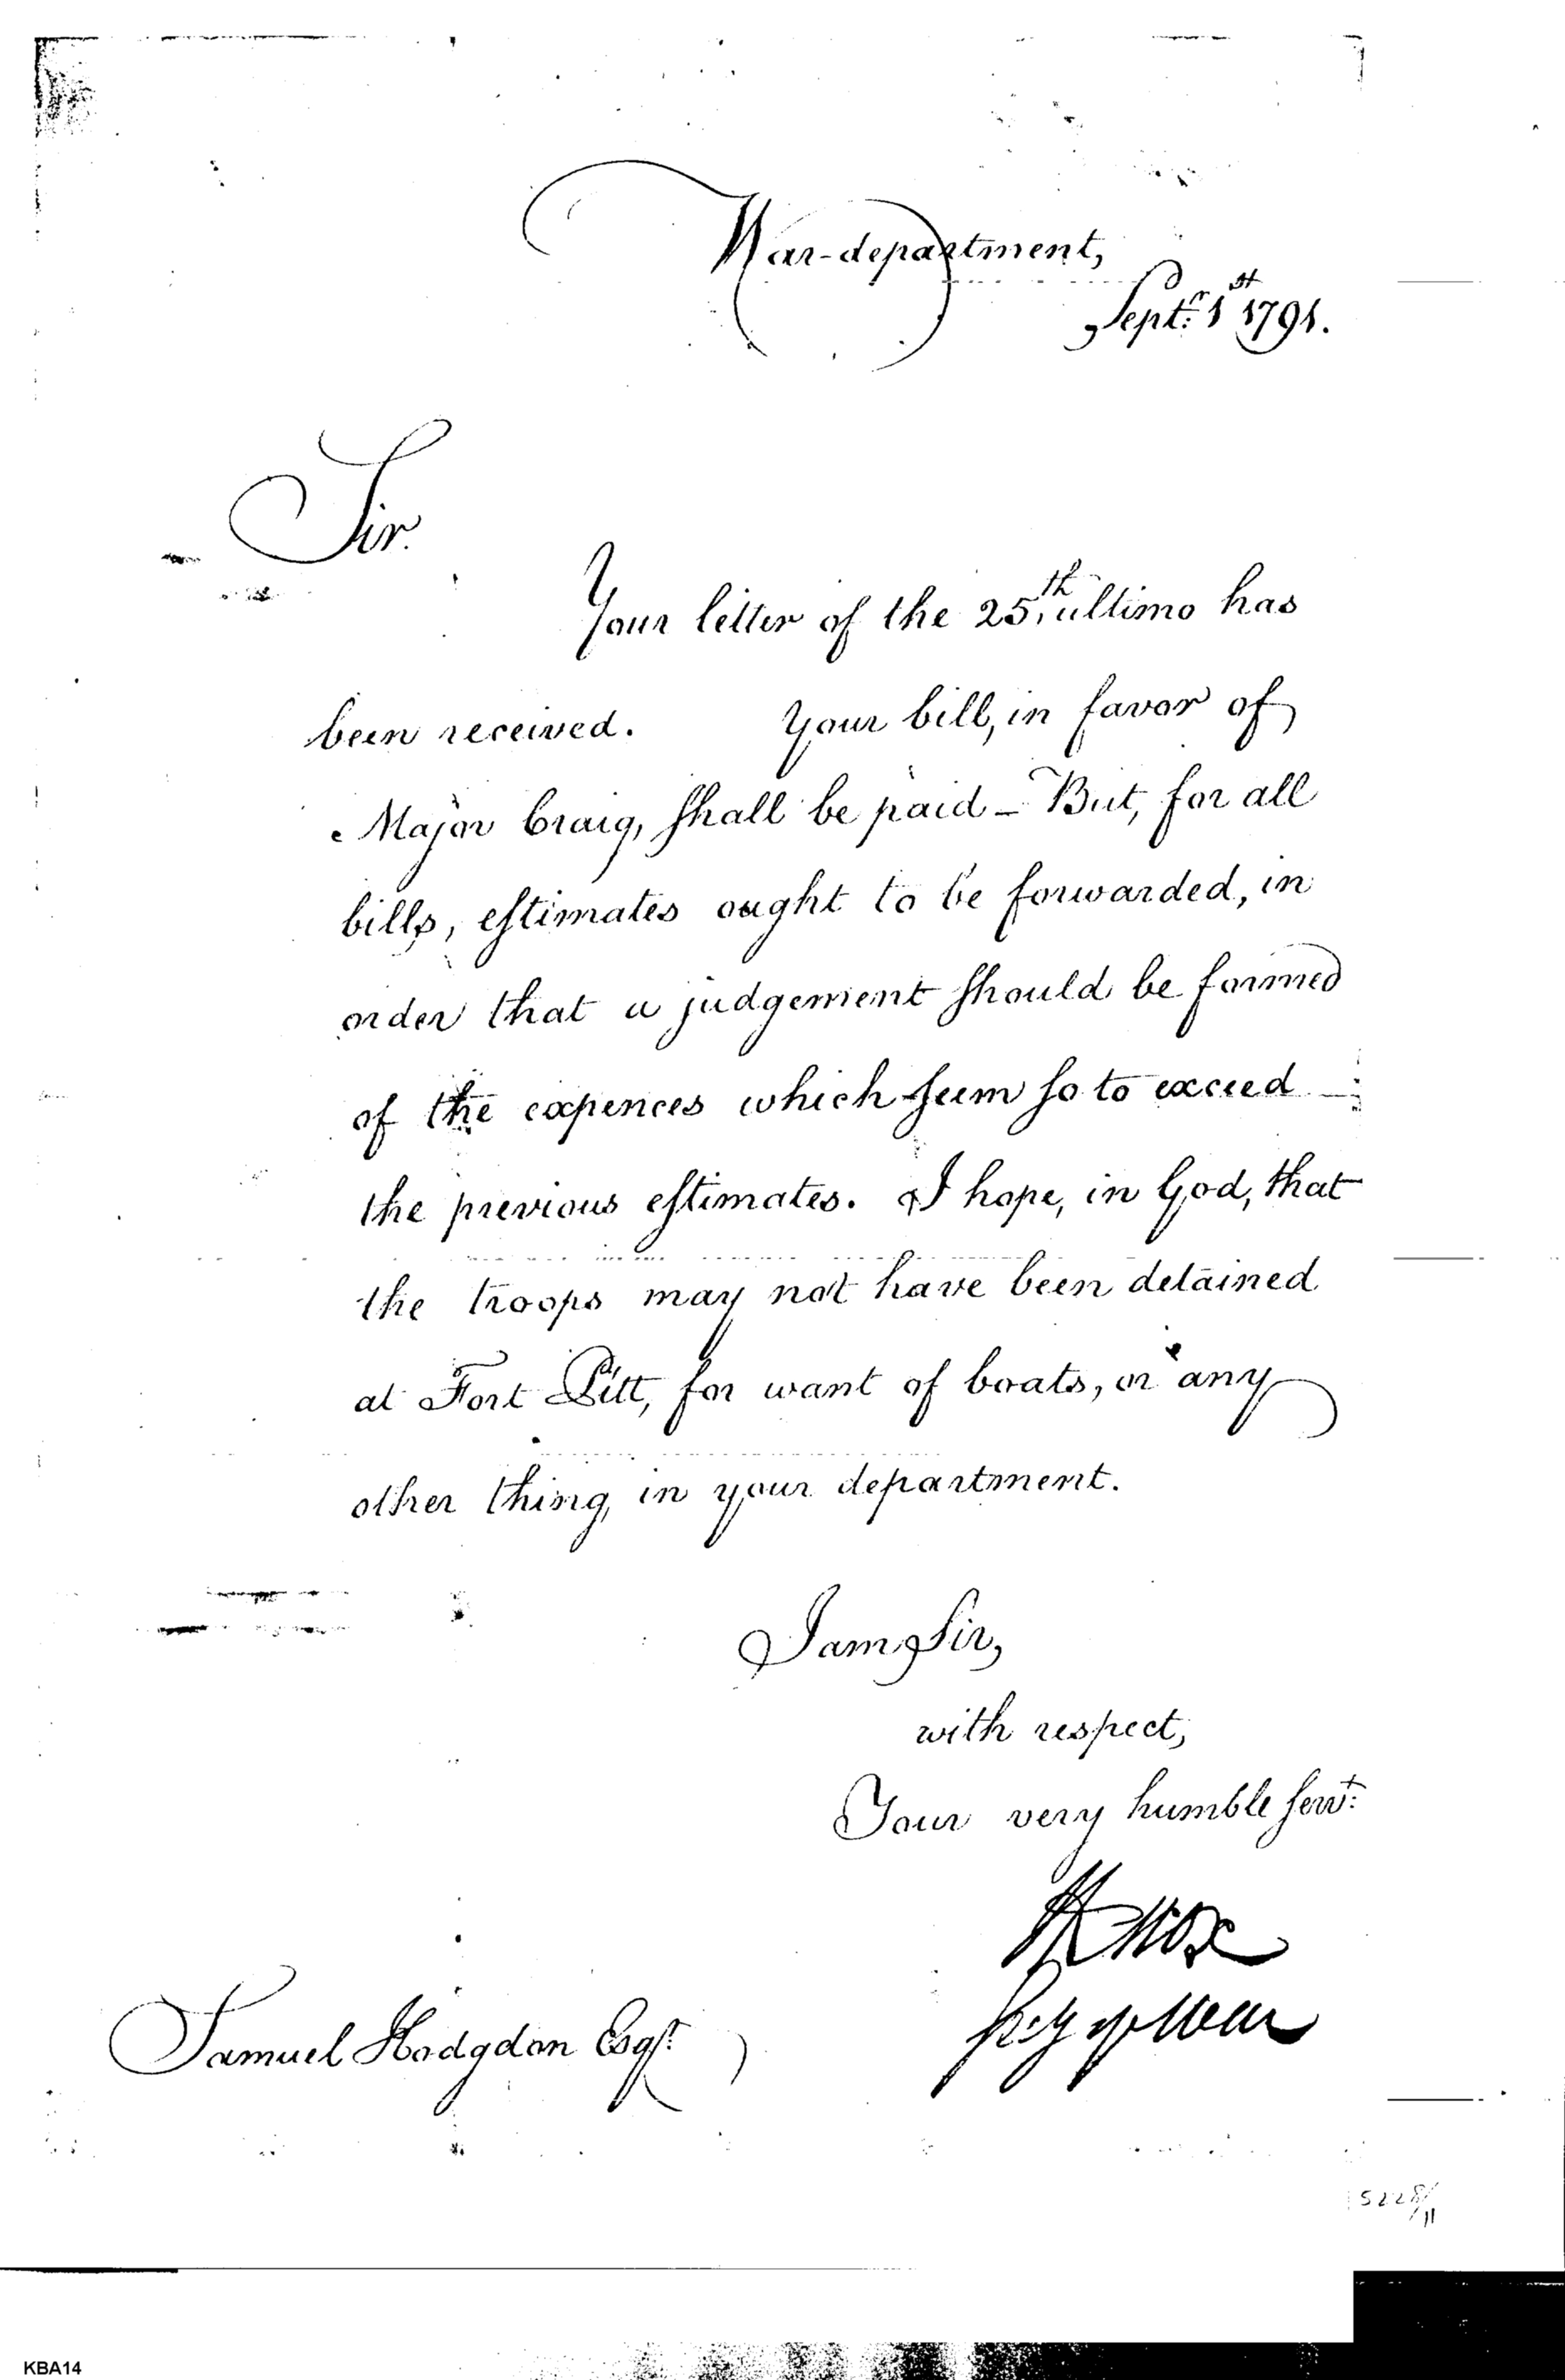 War-department,
Septr. 1st 1791.
Sir.
Your letter of the 25th. ultimo has
been received. Your bill, in favor of
Major Craig, shall be paid – But, for all
bills, estimates ought to be forwarded, in
order that a judgement should be formed
of the expences which seem so to exceed
the previous estimates. I hope, in God, that
the troops may not have been detained
at Fort Pitt, for want of boats, or any
other thing, in your department.
I am Sir,
with respect,
Your very humble servt:
HKnox
Secy of War
Samuel Hodgdon Esqr.
5228/11
KBA14